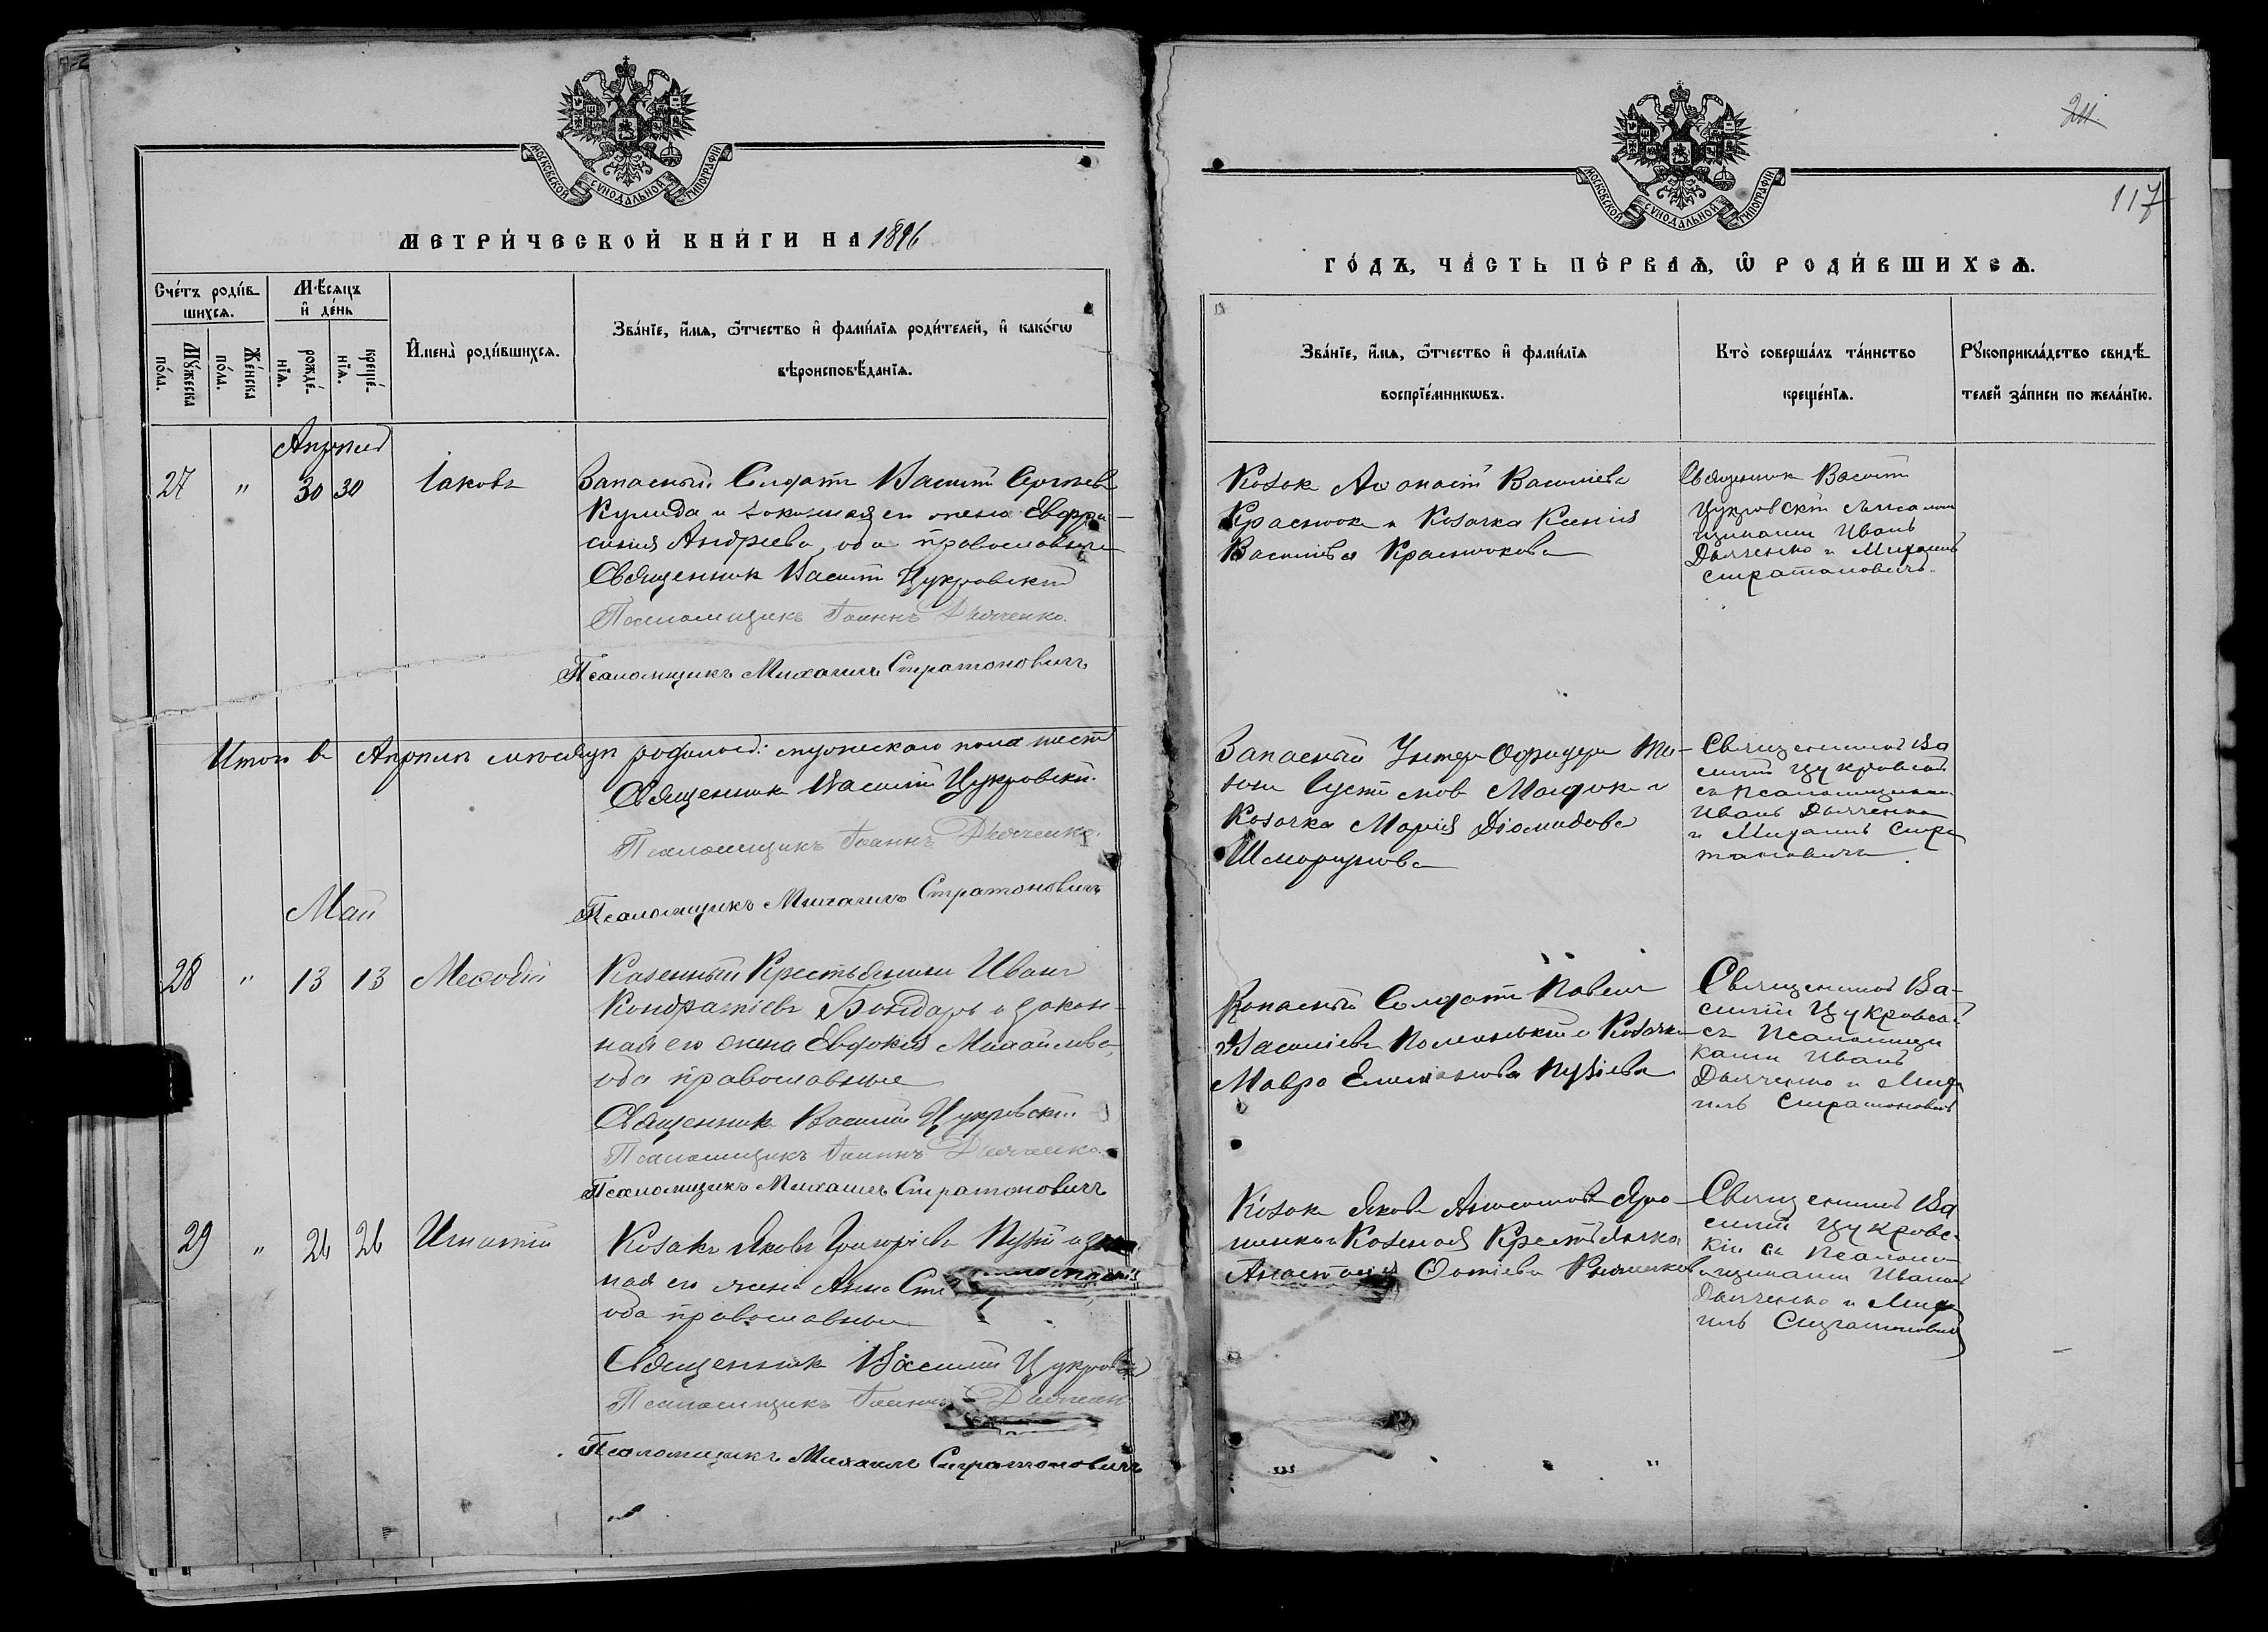 МОСКОВСКОЙ СУНОДАЛЬНОЙ ТИПОГРАФІИ
МЕТРИ́ЧЕСКОЙ КНИ́ГИ НА 1896
Сче́тъ роди́в-
шихсѧ.
Мꙋ́жеска
по́ла.
Же́нска
по́ла.
М́ѣсѧцъ
и҆ де́нь
рожде́-
нїѧ.
креще́-
нїѧ.
И҆мена̀ роди́вшихсѧ.
Зва́нїе, и҆́мѧ, ѻ҆́тчество и҆ фами́лїѧ роди́телей, и҆ како́гѡ
вѣроисповѣ́данїѧ.
Апрѣль
27 " 30 30 Іаковъ
Запасный Солдатъ Василій Сергѣевъ
Кулида и законная его жена Евфро-
синия Андреева, оба православные
Священникъ Василій Цукровскій
Псаломщикъ Іоаннъ Дьяченко.
Псаломщикъ Михаилъ Стратоновичъ
Итого въ Апрѣлѣ мѣсяцѣ родилось: мужескаго пола шесть
Священникъ Василій Цукровскій.
Псаломщикъ Іоаннъ Дьяченко.
Псаломщикъ Михаилъ Стратоновичъ
Май
28 " 13 13 Меѳодій
Казенный Крестьянинъ Иванъ
Кондратіевъ Бондарь и закон-
ная его жена Евдокія Михайлова,
оба православные
Священникъ Василій Цукровскій
Псаломщикъ Іоаннъ Дьяченко.
Псаломщикъ Михаилъ Стратоновичъ
29 " 26 26 Игнатій
Козакъ Яковъ Григоріевъ Пузій и
ная его жена Анна
оба православные
Священникъ Василій Цукровскій
Псаломщикъ Іоаннъ Дьяченко
Псаломщикъ Михаилъ Стратоновичъ
МОСКОВСКОЙ СУНОДАЛЬНОЙ ТИПОГРАФІИ
117
ГО́ДЪ, ЧА́СТЬ ПЕ́РВАѦ, Ѡ҆ РОДИ́ВШИХСѦ.
Зва́нїе, и҆́мѧ, ѻ҆́тчество и҆ фами́лїѧ
воспрїе́мникѡвъ.
Кто̀ соверша́лъ та́инство
креще́нїѧ.
Рꙋкоприкла́дство свидѣ́-
телей за́писи по жела́нїю.
Козакъ Аѳанасій Василіевъ
Краснокъ и Козачка Ксенія
Василіева Краснокова
Священникъ Василій
Цукровскій съ Псалом
щиками Иванъ
Дьяченко и Михаилъ
Стратоновичъ.
Запасный Унтеръ Офицеръ
Козачка Марія Діомидова
Священникъ Ва
силій Цукровскій
съ Псаломщиками
Иванъ Дьяченко
и Михаилъ Стра
тоновичъ.
Запасный Солдатъ Павелъ
Василіевъ и Козачка
Мавра Пузіева
Священникъ Ва-
силій Цукровскій
съ Псаломщи
ками Иванъ
Дьяченко и Миха
илъ Стратоновичъ
Козакъ Яковъ
и Казенная Крестьянка
Анастасія
Священникъ Ва
силій Цукровс-
кій съ Псалом
щиками Иванъ
Дьяченко и Миха
илъ Стратоновичъ